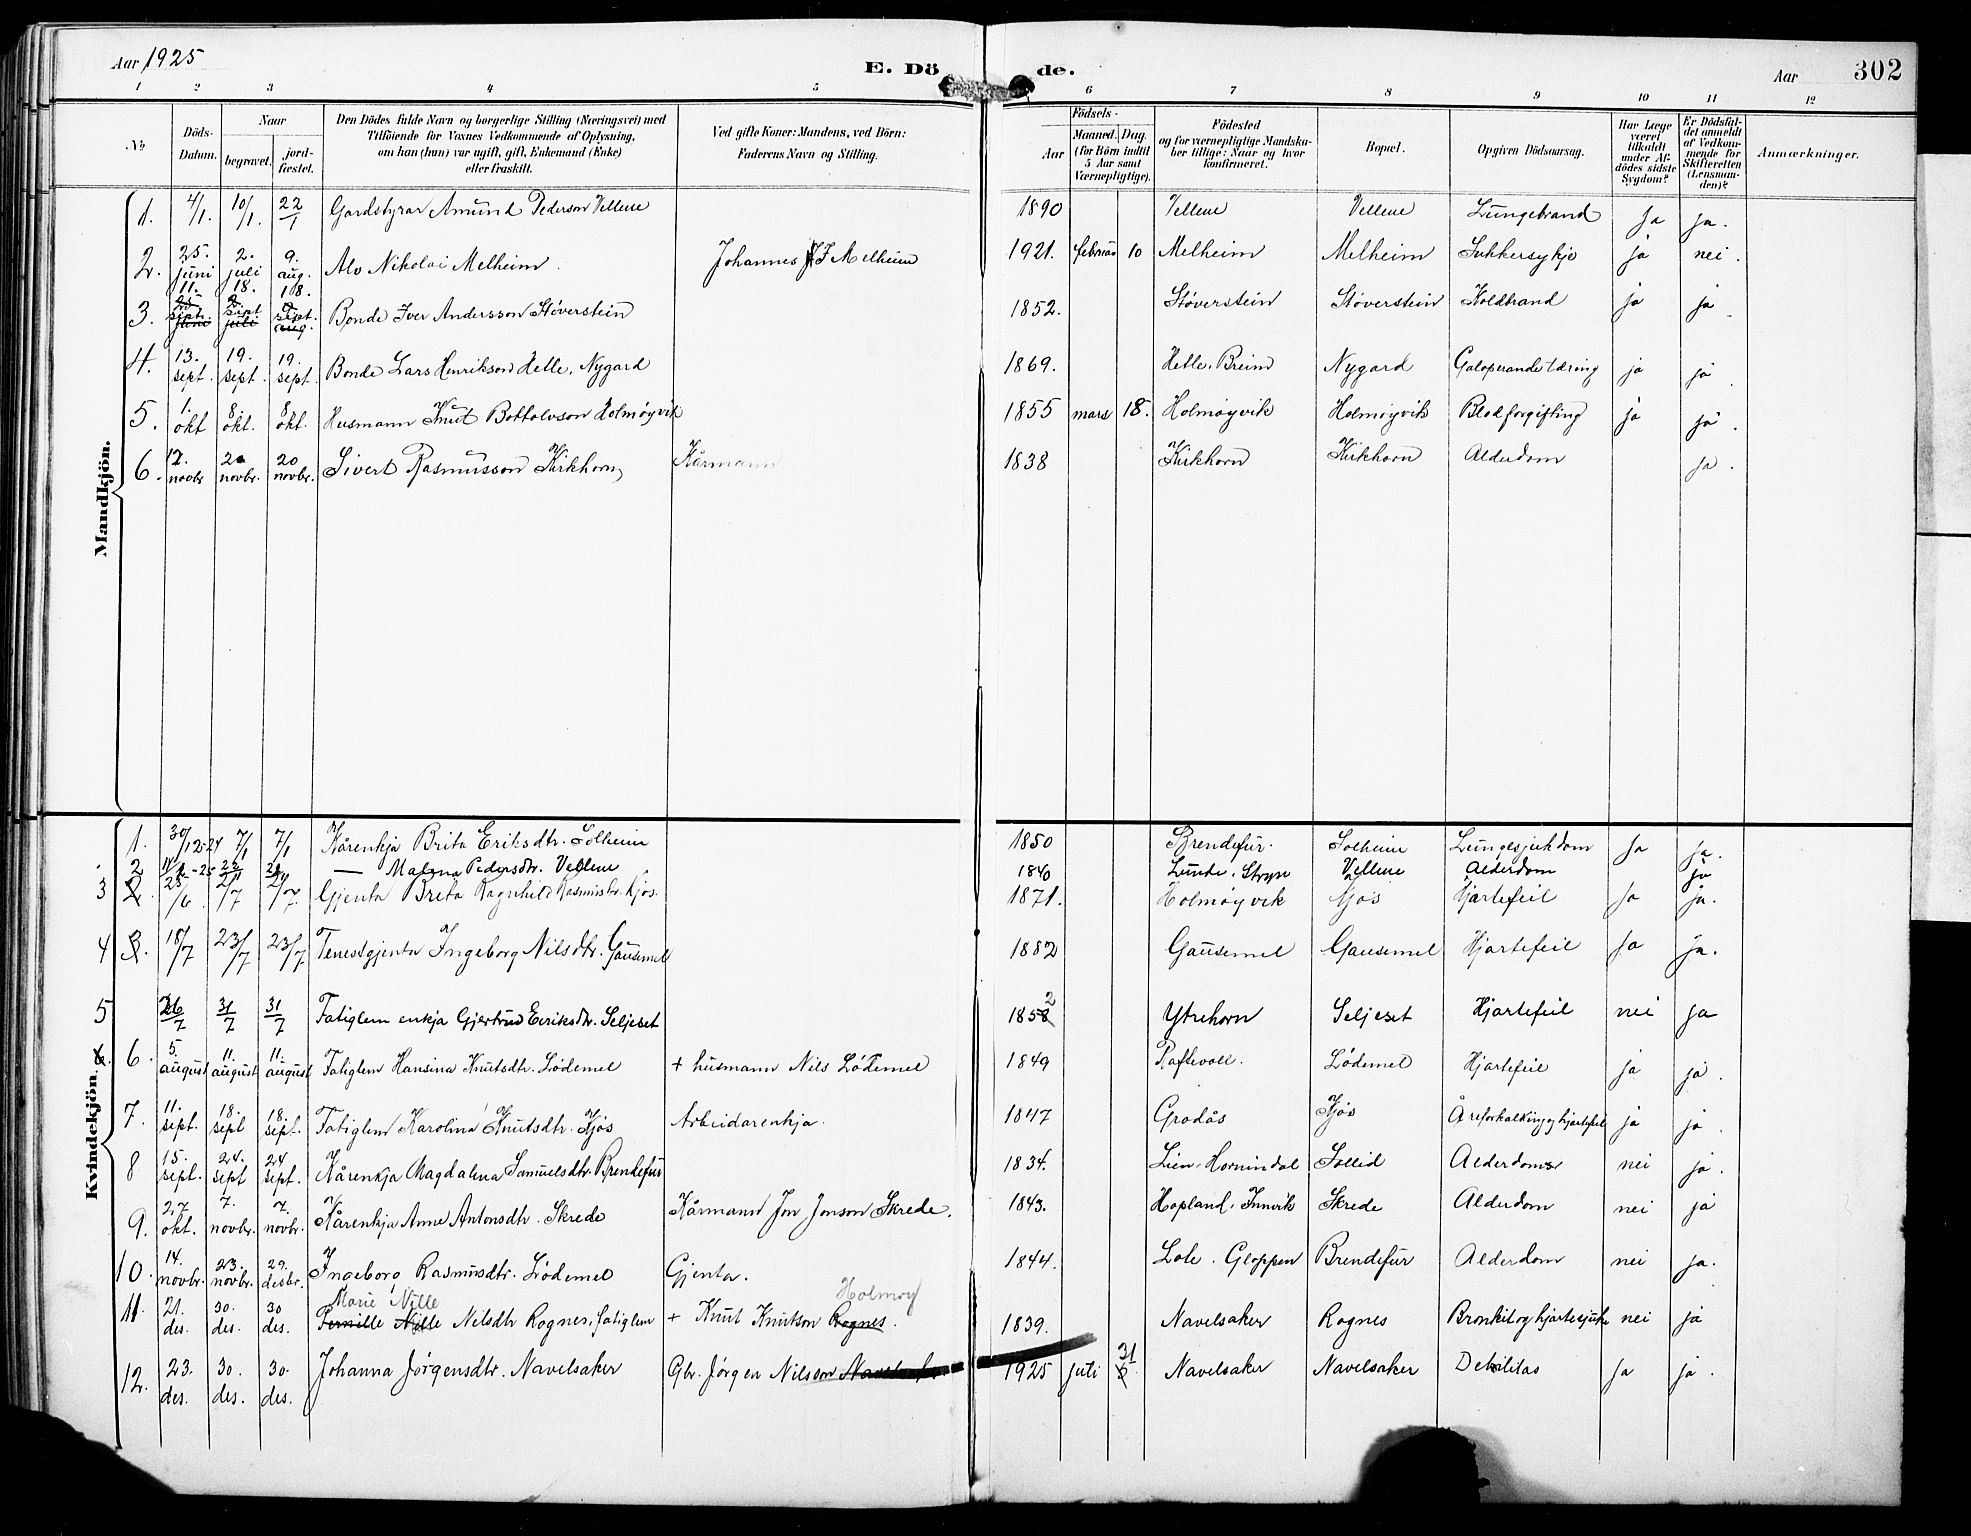 Aar 1925
E. Döde.
Aar 302
1 2 3 4 5 6 7 8 9 10 11 12
№
Döds-Datum.
Naar
begravet.
jord-fæstet.
Den Dödes fulde Navn og borgerlige Stilling (Næringsvei) med
Tilföiende for Voxnes Vedkommende af Oplysning,
om han (hun) var ugift, gift, Enkemand (Enke)
eller fraskilt.
Ved gifte Koner: Mandens, ved Börn:
Faderens Navn og Stilling.
Födsels-
Aar
Maaned. Dag.
(for Börn indtil
5 Aar samt
Værnepligtige).
Födested
og for værnepligtige Mandska-
ber tillige: Naar og hvor
konfirmeret.
Bopæl.
Opgiven Dödsaarsag.
Har Læge
været
tilkaldt
under Af-
dödes sidste
Sygdom?
Er Dödsfal-
det anmeldt
af Vedkom-
mende for
Skifteretten
(Lensman-
den)?
Anmærkninger.
Mandkjön.
1. 4/1. 10/1. 22/1 Gardstyrar Amund Pederson Vellene 1890 Vellene Vellene Lungebrand Ja ja.
2. 25. juni 2. juli 9. aug. Alv Nikolai Melheim. Johannes J Melheim 1921. februar 10 Melheim Melheim Sukkersykje ja nei.
3. 11. sept. 18. sept 18. sept. Bonde Iver Andersson Støverstein 1852. Støverstein Støverstein Koldbrand ja ja.
4. 13. sept. 19. sept. 19. sept. Bonde Lars Henrikson Helle, Nygard 1869. Helle, Breim Nygard Galoperande tæring ja ja.
5. 1. okt 8. okt. 8. okt. Husmann Knut Bottolvson Holmøyvik 1855 mars 18. Holmøyvik Holmøyvik Blodforgifting ja ja.
6. 12. novbr 20 novbr. 20 novbr. Sivert Rasmusson Kirkhorn Kårmann 1838 Kirkhorn Kirkhorn Alderdom ja.
Kvindekjön.
1. 30/12-24 7/1 7/1 Kårenkja Brita Eriksdtr. Solheim 1850 Brendefur. Solheim Lungesjukdom Ja ja.
2 — Malena Pedersdtr. Vellene 1840 Lunde, Stryn Vellene Alderdom ja
3 25/6 2/7 2/7. Gjenta Brita Ragnhild Rasmusdtr. Kjøs. 1871. Holmøyvik Kjøs Hjartefeil Ja ja.
4 18/7 23/7 23/7 Tenestgjenta Ingeborg Nilsdtr. Gausemel 1882 Gausemel Gausemel Hjartefeil Ja ja.
5 26/7 31/7 31/7 Fatiglem enkja Gjertrud Eeriksdtr. Seljeset 1852 Ytrehorn Seljeset Hjartefeil nei ja
6. 5. august 11. august 11. august Fatiglem Hansina Knutsdtr. Lødemel + husmann Nils Lødemel 1849 Raftevoll. Lødemel Hjartefeil ja ja.
7. 11. sept. 18. sept 18. sept. Fatiglem Karolina Knutsdtr. Kjøs Arbeidarenkja. 1847 Grodås Kjøs Åreforkalking og hjartefeil ja ja.
8 15. sept. 24. sept 24 sept. Kårenkja Magdalena Samuelsdtr. Brendefur 1834. Lien, Hornindal Sollid Alderdom nei ja.
9. 27 okt. 7. novbr. 7. novbr. Kårenkja Anne Antonsdtr. Skrede Kårmann Jon Jonson Skrede. 1843. Hopland, Innvik Skrede Alderdom nei ja
10. 14. novbr. 23. novbr. 29. desbr. Ingeborg Rasmusdtr. Lødemel Gjenta. 1844. Lole. Gloppen Brendefur Alderdom nei ja.
Marie Nille Holmøy
11. 21. des. 30. des. 30 des. Pernille Nille Nilsdtr Rognes, fatiglem + Knut Knutson Rognes. 1839. Navelsaker Rognes Bronkit og hjartesjuke nei ja
12. 23. des. 30. des. 30. des. Johanna Jørgensdtr. Navelsaker Gbr. Jørgen Nilsson Navelsaker 1925 juli 31 Navelsaker Navelsaker Debilitas Ja ja.